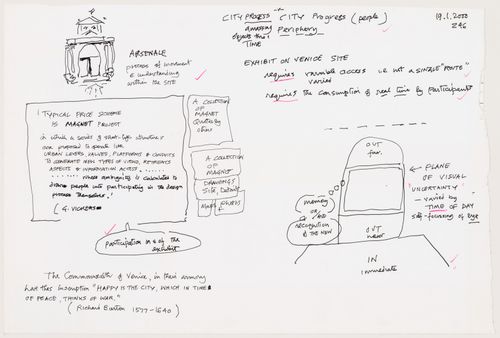 CITY PROCESS CITY Progress (people)
Periphery
objects thro'
TIME
19.1.2000
ARSENALE
process of movement
& understanding
within the site
EXHIBIT ON VENICE SITE
requires variable access i.e. not a SINGLE "ROUTE"
varied
requires the consumption of real time by participants
"TYPICAL PRICE SCHEME
IS MAGNET PROJECT
in which a series of
are proposed to operate like
URBAN LEVERS, VALVES, PLATFORMS & CONDUITS
TO GENERATE NEW TYPES OF VIEWS, REFERENCES
ASPECTS & INFORMATION ACCESS
where ambiguity is calculated to
draw people into participating in the design
process themselves"
G. VICKERS
A COLLECTION
OF MAGNET
QUOTES BY
others
A COLLECTION
OF MAGNET
DRAWINGS
SITE, Details
MAPS photos
participation in & of the
exhibit
OUT
far
memory
or
recognition
& THE NEW
OUT
near
IN
immediate
PLANE
OF VISUAL
UNCERTAINTY
varied by
TIME OF DAY
self-focusing of Eye
The Commonwealth of Venice, in their armory
has this inscription "HAPPY IS THE CITY, WHICH IN TIMES
OF PEACE, THINKS OF WAR."
(Richard Burton 1577-1640)